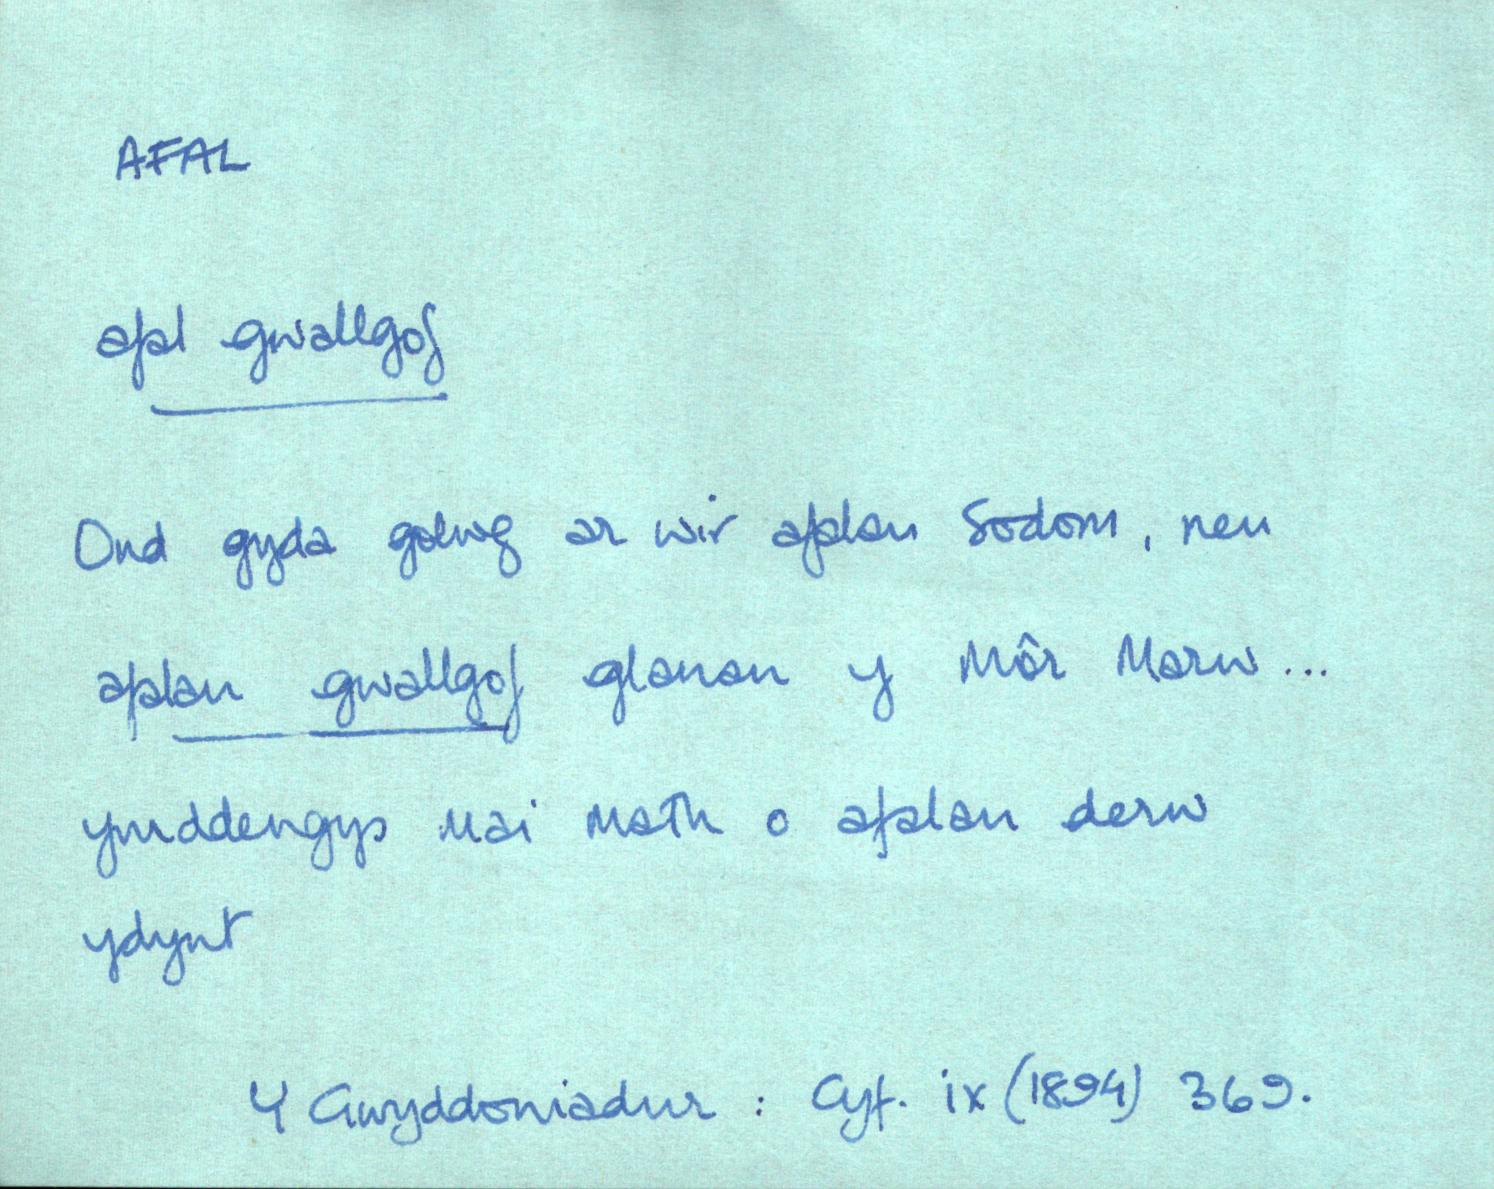 AFAL
afal gwallgof
Ond gyda golwg ar wir afalau Sodom, neu
afalau gwallgof glanau y Môr Marw...
ymddengys mai math o afalau derw
ydynt
Y Gwyddoniadur : Cyf. ix (1894) 369.